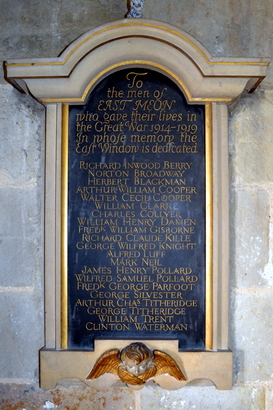 To
the men of
EAST MEON
who gave their lives in
the Great War 1914-1919
In whose memory the
East Window is dedicated
RICHARD INWOOD BERRY
NORTON BROADWAY
HERBERT BLACKMAN
ARTHUR WILLIAM COOPER
WALTER CECIL COOPER
WILLIAM CLARKE
CHARLES COLLYER
WILLIAM HENRY DAMEN
FREDK WILLIAM GISBORNE
RICHARD CLAUDE KILLE
GEORGE WILFRED KNIGHT
ALFRED LUFF
MARK NEIL
JAMES HENRY POLLARD
WILFRED SAMUEL POLLARD
FREDK GEORGE PARFOOT
GEORGE SILVESTER
ARTHUR CHAS TITHERIDGE
GEORGE TITHERIDGE
WILLIAM TRENT
CLINTON WATERMAN